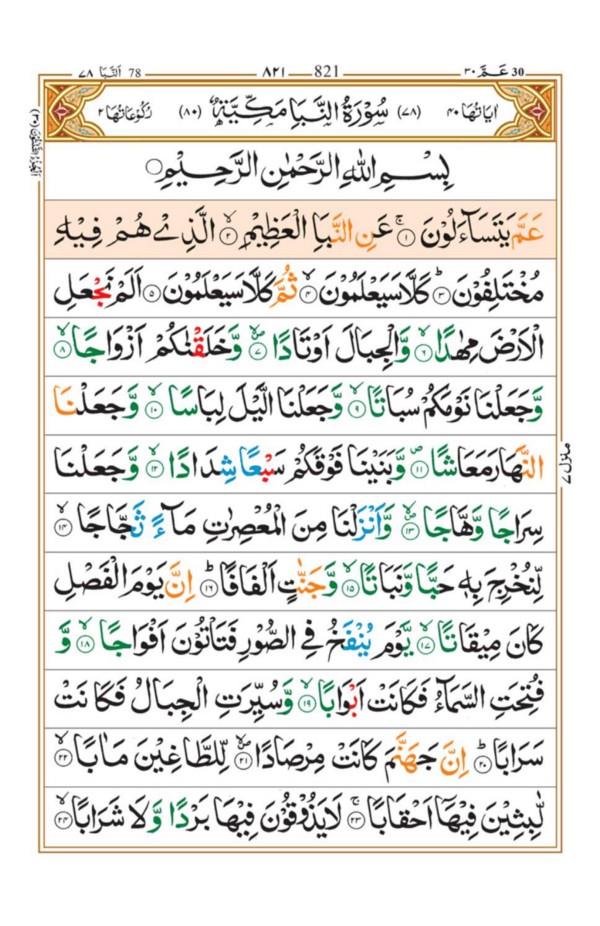 ٧٨ اَلنَّبَا 78 ٨٢١ — 821 عَمَّ ٣٠ 30
اٰيَاتُهَا ٤٠ (٧٨) سُوْرَةُ النَّبَاِ مَكِّيَّةٌ (٨٠) رُكُوْعَاتُهَا ٢
بِسْمِ اللهِ الرَّحْمٰنِ الرَّحِيْمِ
عَمَّ يَتَسَآءَلُوْنَ ۚ ١ عَنِ النَّبَاِ الْعَظِيْمِ ۙ ٢ الَّذِيْ هُمْ فِيْهِ
مُخْتَلِفُوْنَ ؕ ٣ كَلَّا سَيَعْلَمُوْنَ ۙ ٤ ثُمَّ كَلَّا سَيَعْلَمُوْنَ ٥ اَلَمْ نَجْعَلِ
الْاَرْضَ مِهٰدًا ۙ ٦ وَّالْجِبَالَ اَوْتَادًا ۪ۙ ٧ وَّخَلَقْنٰكُمْ اَزْوَاجًا ۙ ٨
وَّجَعَلْنَا نَوْمَكُمْ سُبَاتًا ۙ ٩ وَّجَعَلْنَا الَّيْلَ لِبَاسًا ۙ ١٠ وَّجَعَلْنَا
النَّهَارَ مَعَاشًا ۪ ١١ وَّبَنَيْنَا فَوْقَكُمْ سَبْعًا شِدَادًا ۙ ١٢ وَّجَعَلْنَا
سِرَاجًا وَّهَّاجًا ۪ۙ ١٣ وَّاَنْزَلْنَا مِنَ الْمُعْصِرٰتِ مَآءً ثَجَّاجًا ۙ ١٤
لِّنُخْرِجَ بِهٖ حَبًّا وَّنَبَاتًا ۙ ١٥ وَّجَنّٰتٍ اَلْفَافًا ؕ ١٦ اِنَّ يَوْمَ الْفَصْلِ
كَانَ مِيْقَاتًا ۙ ١٧ يَّوْمَ يُنْفَخُ فِي الصُّوْرِ فَتَاْتُوْنَ اَفْوَاجًا ۙ ١٨ وَّ
فُتِحَتِ السَّمَآءُ فَكَانَتْ اَبْوَابًا ۙ ١٩ وَّسُيِّرَتِ الْجِبَالُ فَكَانَتْ
سَرَابًا ؕ ٢٠ اِنَّ جَهَنَّمَ كَانَتْ مِرْصَادًا ۪ۙ ٢١ لِّلطَّاغِيْنَ مَاٰبًا ۙ ٢٢
لّٰبِثِيْنَ فِيْهَاۤ اَحْقَابًا ۚ ٢٣ لَا يَذُوْقُوْنَ فِيْهَا بَرْدًا وَّلَا شَرَابًا ۙ ٢٤
منزل ٧